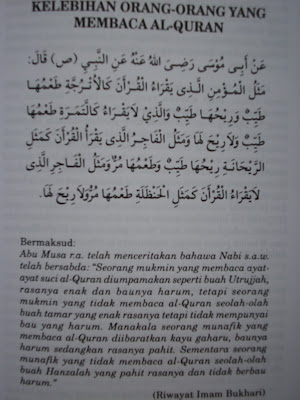 KELEBIHAN ORANG-ORANG YANG
MEMBACA AL-QURAN
عَنْ أَبِي مُوْسَى رَضِىَ اللهُ عَنْهُ عَنِ النَّبِيِّ (ص) قَالَ:
مَثَلُ الْمُؤْمِنِ الَّذِى يَقْرَاءُ الْقُرْآنَ كَالْأُتْرُجَّةِ طَعْمُهَا
طَيِّبٌ وَرِيْحُهَا طَيِّبٌ وَالَّذِيْ لَايَقْرَاءُ كَالتَّمْرَةِ طَعْمُهَا
طَيِّبٌ وَلَا رِيْحَ لَهَا وَمَثَلُ الْفَاجِرِ الَّذِى يَقْرَأُ الْقُرْآنَ كَمَثَلِ
الرَّيْحَانَةِ رِيْحُهَا طَيِّبٌ وَطَعْمُهَا مُرٌّ وَمَثَلُ الْفَاجِرِ الَّذِى
لَايَقْرَاءُ الْقُرْآنَ كَمَثَلِ الْحَنْظَلَةِ طَعْمُهَا مُرٌّ وَلَا رِيْحَ لَهَا.
Bermaksud:
Abu Musa r.a. telah menceritakan bahawa Nabi s.a.w.
telah bersabda: "Seorang mukmin yang membaca ayat-
ayat suci al-Quran diumpamakan seperti buah Utrujjah,
rasanya enak dan baunya harum, tetapi seorang
mukmin yang tidak membaca al-Quran seolah-olah
buah tamar yang enak rasanya tetapi tidak mempunyai
bau yang harum. Manakala seorang munafik yang
membaca al-Quran diibaratkan kayu gaharu, baunya
harum sedangkan rasanya pahit. Sementara seorang
munafik yang tidak membaca al-Quran seolah-olah
buah Hanzalah yang pahit rasanya dan tidak berbau
harum."
(Riwayat Imam Bukhari)